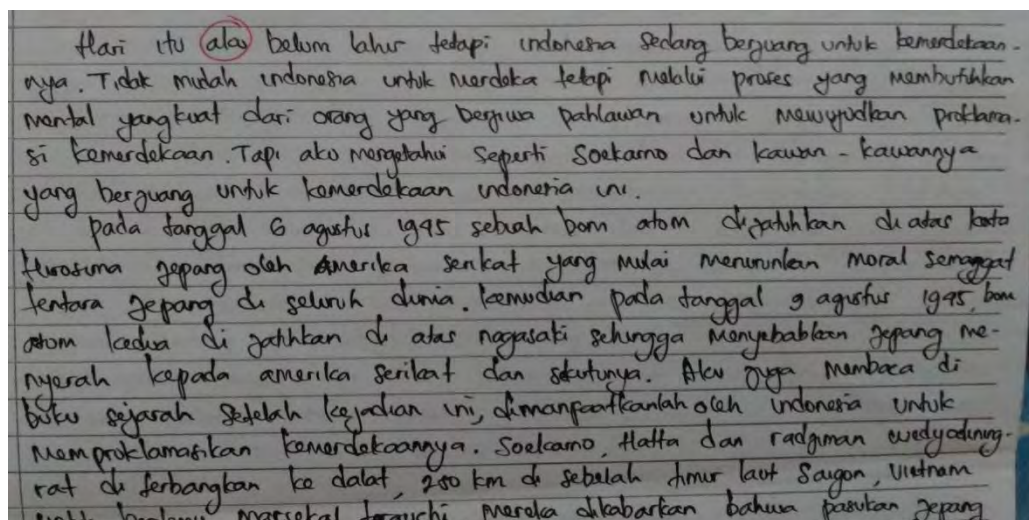 Hari itu alay belum lahir tetapi indonesia sedang berjuang untuk kemerdekaan-
nya. Tidak mudah indonesia untuk merdeka tetapi melalui proses yang membutuhkan
mental yang kuat dari orang yang berjiwa pahlawan untuk mewujudkan proklama-
si kemerdekaan. Tapi aku mengetahui seperti Soekarno dan kawan-kawannya
yang berjuang untuk kemerdekaan indonesia ini.
pada tanggal 6 agustus 1945 sebuah bom atom dijatuhkan di atas kota
Hirosima jepang oleh Amerika serikat yang mulai menurunkan moral semanggat
tentara jepang di seluruh dunia. kemudian pada tanggal 9 agustus 1945, bom
atom kedua di jatuhkan di atas nagasaki sehingga menyebabkan jepang me-
nyerah kepada amerika serikat dan sekutunya. Aku juga membaca di
buku sejarah setelah kejadian ini, dimanfaatkanlah oleh indonesia untuk
memproklamasikan kemerdekaannya. Soekarno, Hatta dan radjiman wedyodining-
rat di terbangkan ke dalat, 250 km di sebelah timur laut Saigon, Vietnam
marsekal terauchi mereka dikabarkan bahwa pasukan jepang